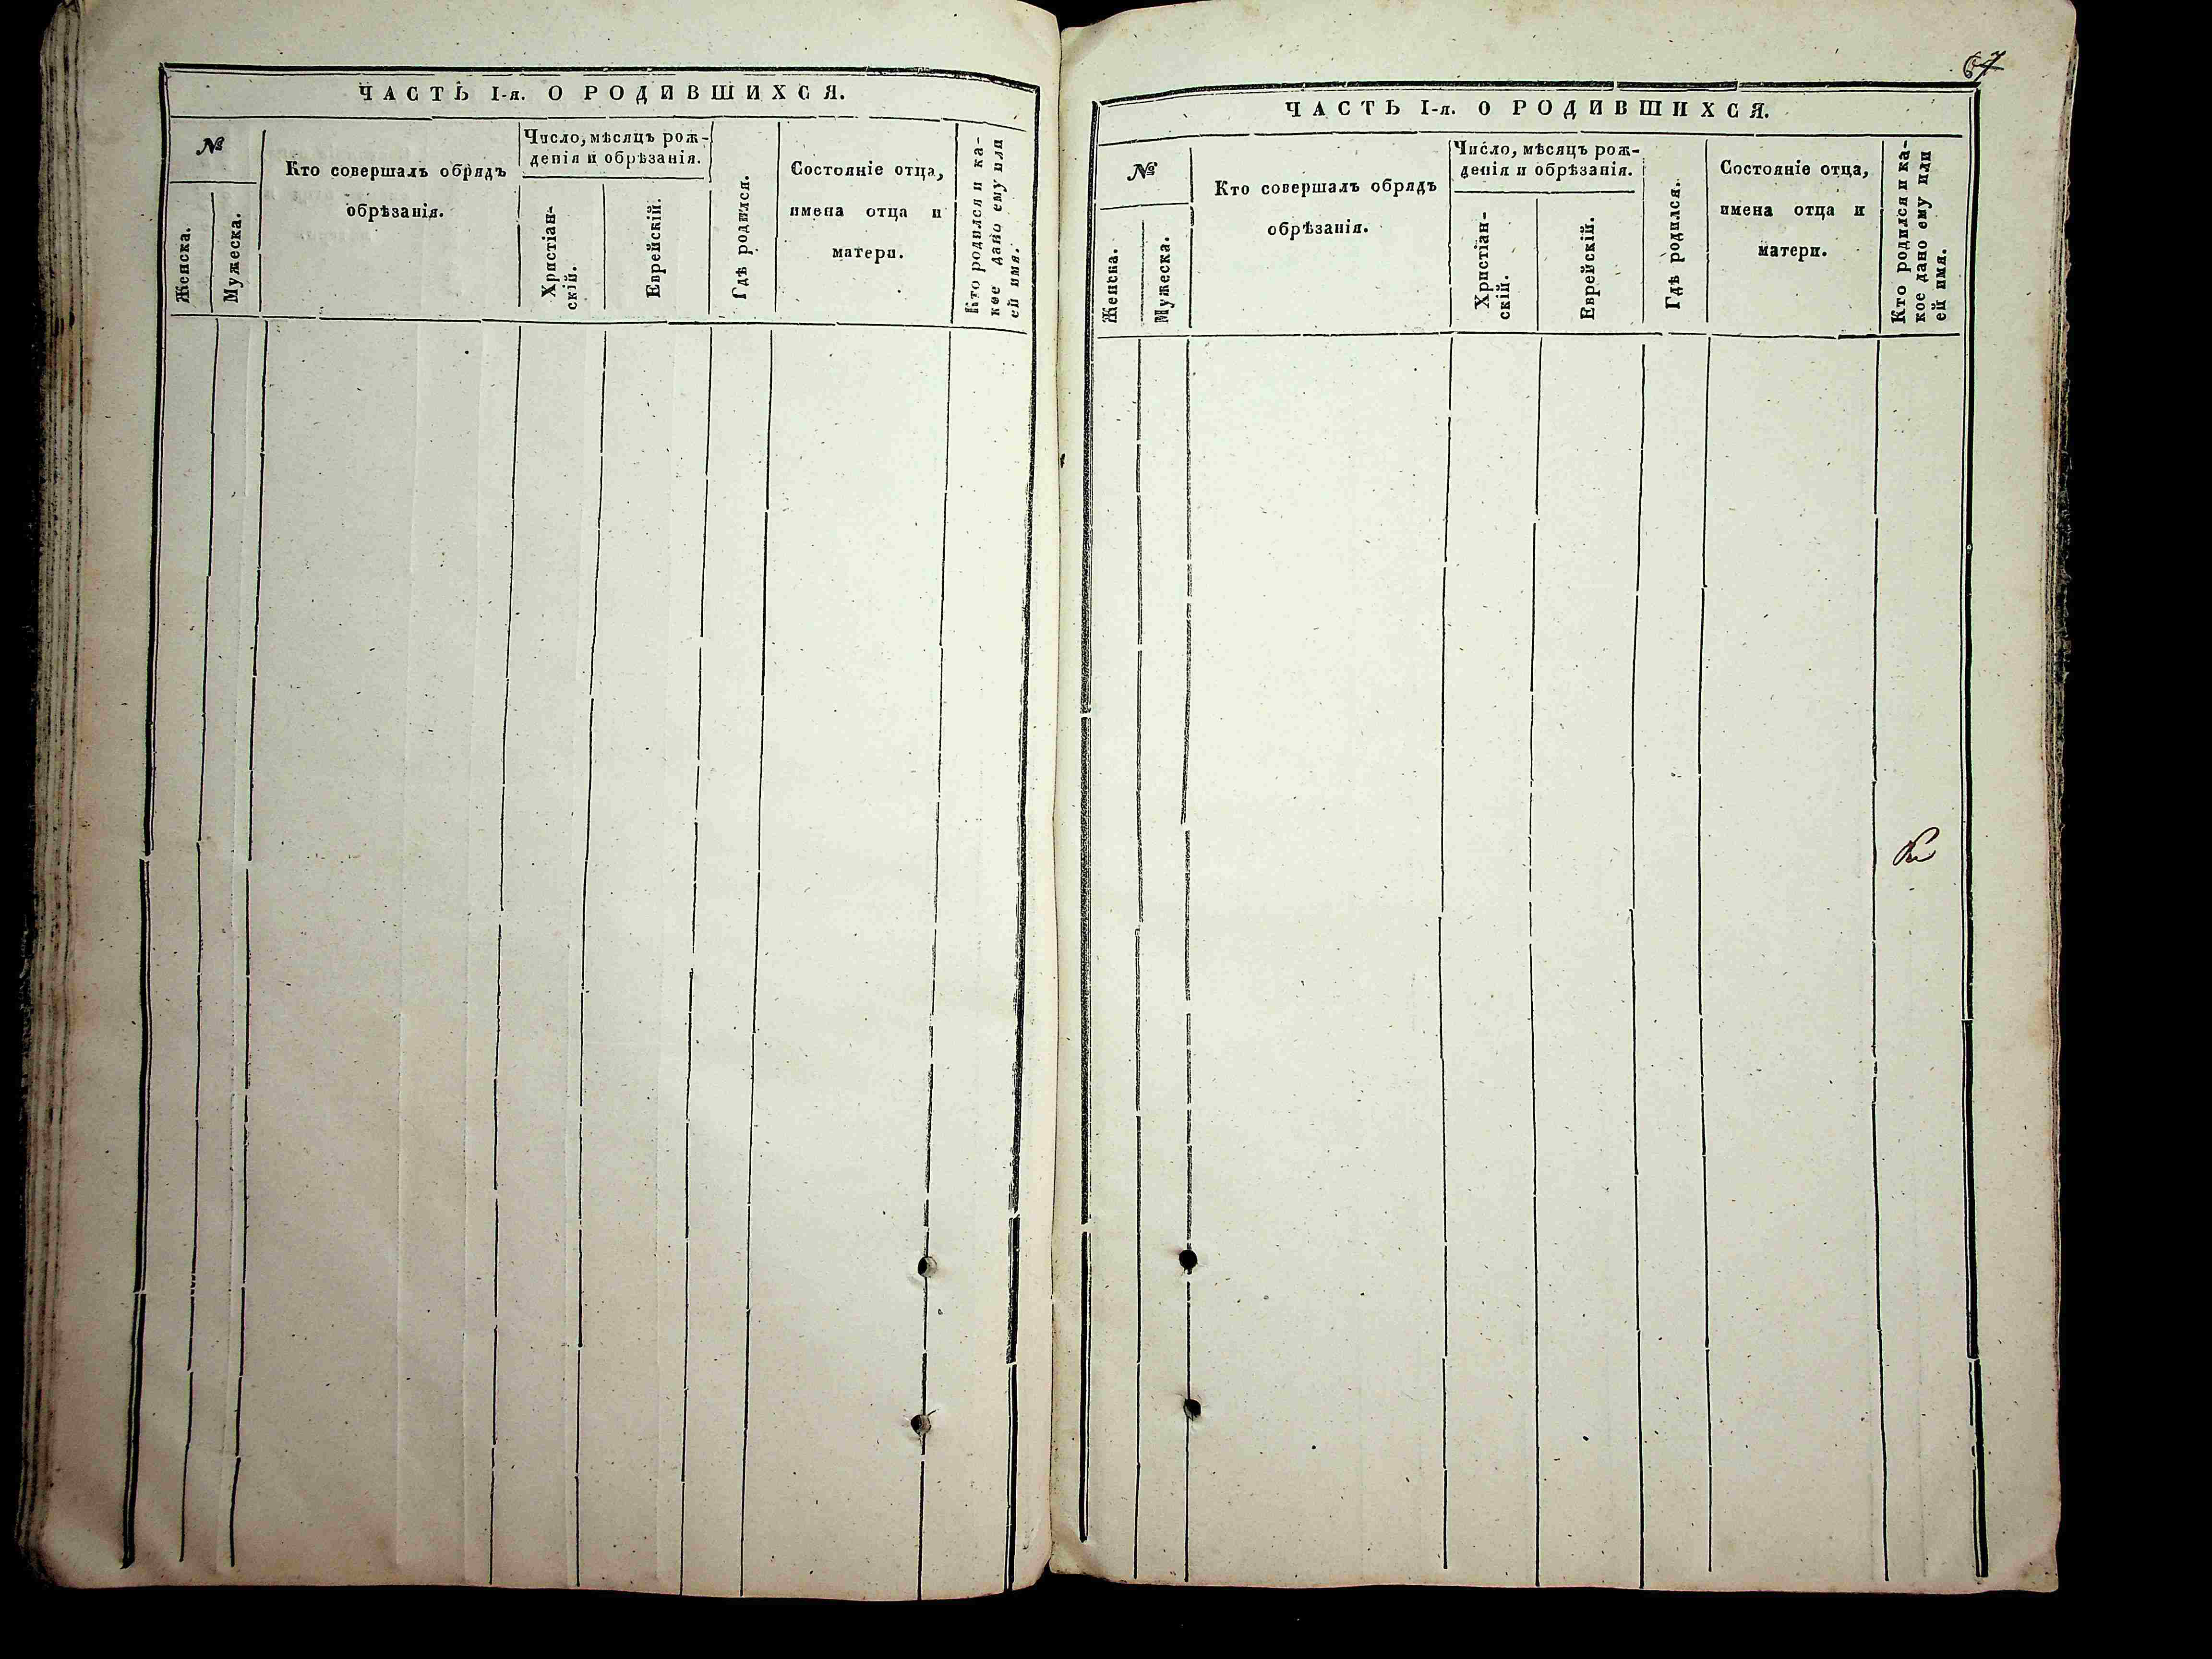 ЧАСТЬ I-я. О РОДИВШИХСЯ.
№
Женска.
Мужеска.
Кто совершалъ обрядъ
обрѣзанія.
Число, мѣсяцъ рож-
денія и обрѣзанія.
Христіан-
скій.
Еврейскій.
Гдѣ родился.
Состояніе отца,
имена отца и
матери.
Кто родился и ка-
кое дано ему или
ей имя.
67
ЧАСТЬ I-я. О РОДИВШИХСЯ.
№
Женска.
Мужеска.
Кто совершалъ обрядъ
обрѣзанія.
Число, мѣсяцъ рож-
денія и обрѣзанія.
Христіан-
скій.
Еврейскій.
Гдѣ родился.
Состояніе отца,
имена отца и
матери.
Кто родился и ка-
кое дано ему или
ей имя.